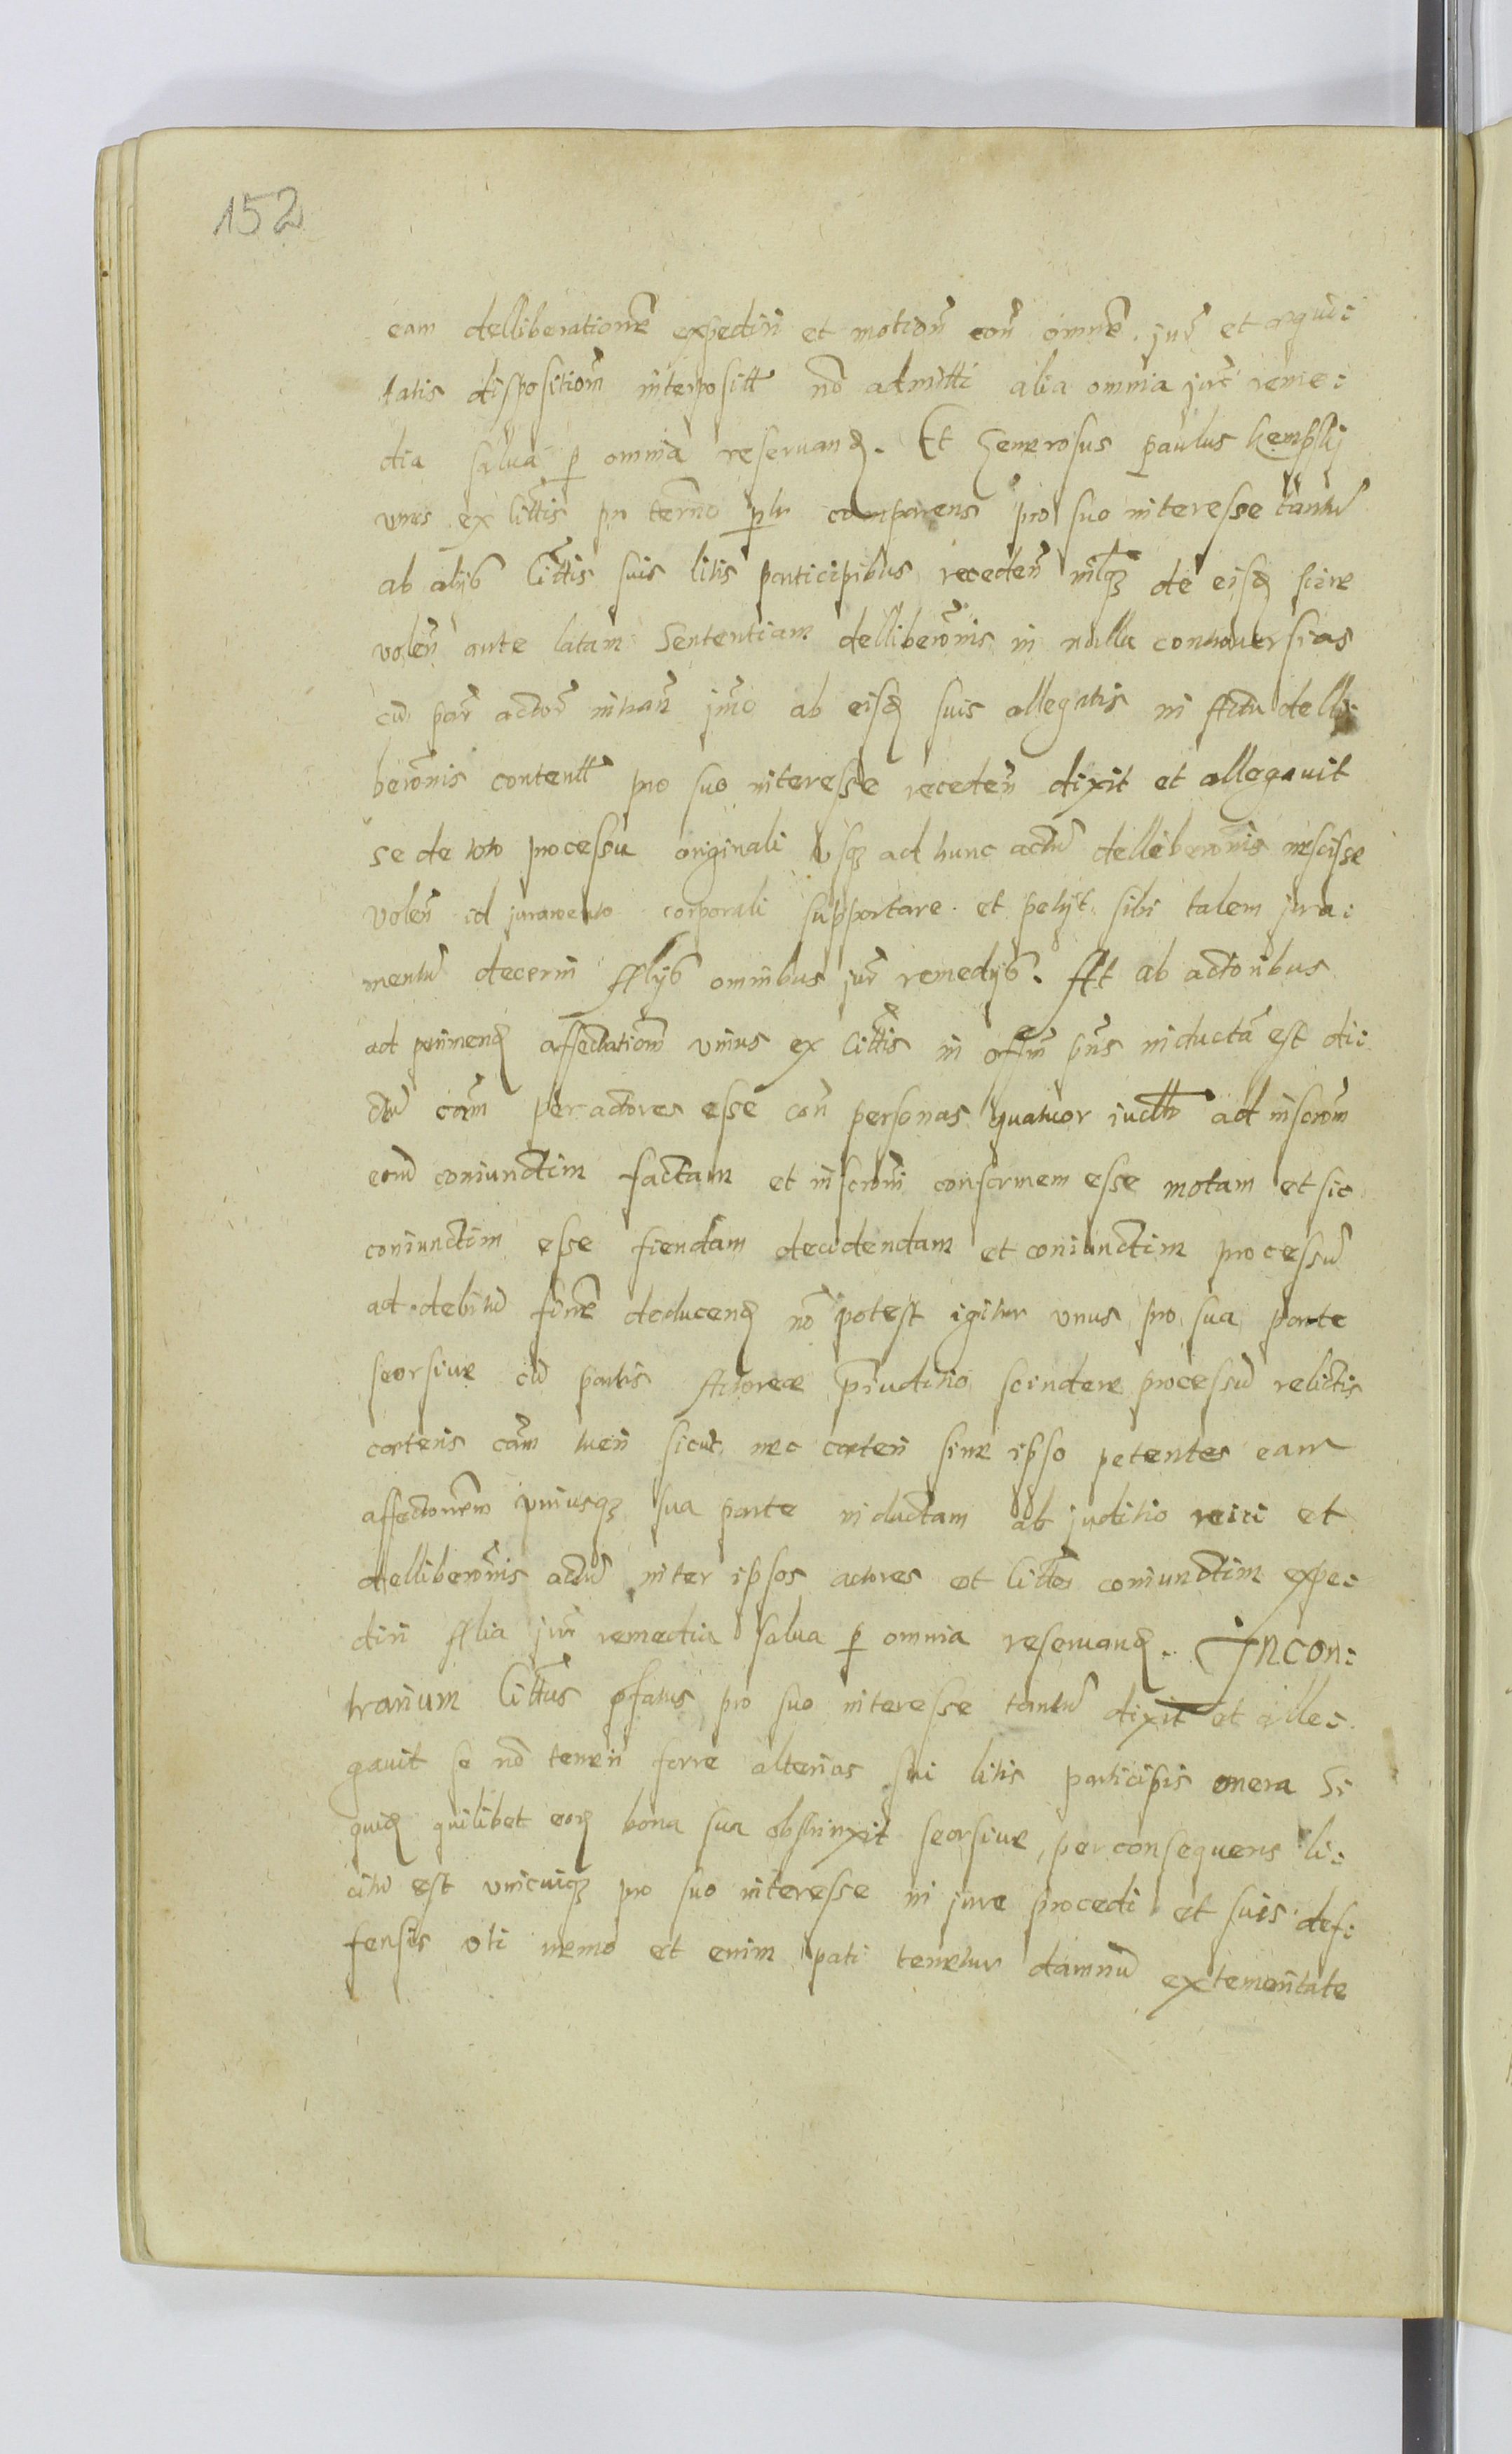 152
eam delliberationē expediri et motion̄ con̄ omnē jur̄ et aequi:
tatis dispositiom̄ interposit̄ nō admitti alia omnia jur̄ reme:
dia salva p omnia reservand. Et Generosus paulus kempskj
unus ex Citt̄is pn̄ termō plr comparens pro suo interesse tantū
ab alijs Citt̄is suis litis participibus receden̄ nilq3 de eisd scire
volen̄ ante latam Sententiam delliberōnis in nulla controversias
cū par̄ actor̄ intran̄ jm̄o ab eisd suis allegatis in Actu delli:
berōnis content̄ pro suo interesse receden̄ dixit et allegavit
se de toto processu originali usq3 ad hunc actū delliberōnis nescisse
volen̄ id juramento corporali supportare et petijt sibi talem jura:
mentū decerni Alijs omnibus jur̄ remedijs. At ab actoribus
ad perimend affectatiom̄ unius ex Citt̄is in off̄m pn̄s inductā est di:
ctū cam̄ per actores esse con̄ personas quatuor iuxta ad inscrōm
eorū coniunctim factam et inscrōni conformem esse motam et sic
coniunctim esse fiendam decidendam et coniunctim processū
ad debitū finē deducend nō potest igitur unus pro sua parte
seorsive cū partis Actoreae p̄iuditio scindere processū relictis
caeteris cam̄ tueri sicut nec caeteri sine ipso petentes eam
affectōnem uniusq3 sua parte inductam ab juditio reici et
delliberōnis actū inter ipsos actores et Citt̄os coniunctim expe:
diri Alia jur̄ remedia salva p omnia reservand. Incon:
trarium Citt̄us pfatus pro suo interesse tantū dixit et alle:
gavit se nō teneri ferre alterius sui litis participis onera Si
quid quilibet eord bona sua obstrinxit seorsive, per consequens li:
citū est unicuiq3 pro suo interesse in jure procedi et suis def:
fensis uti nemo et enim pati tenetur damnū ex temeritate